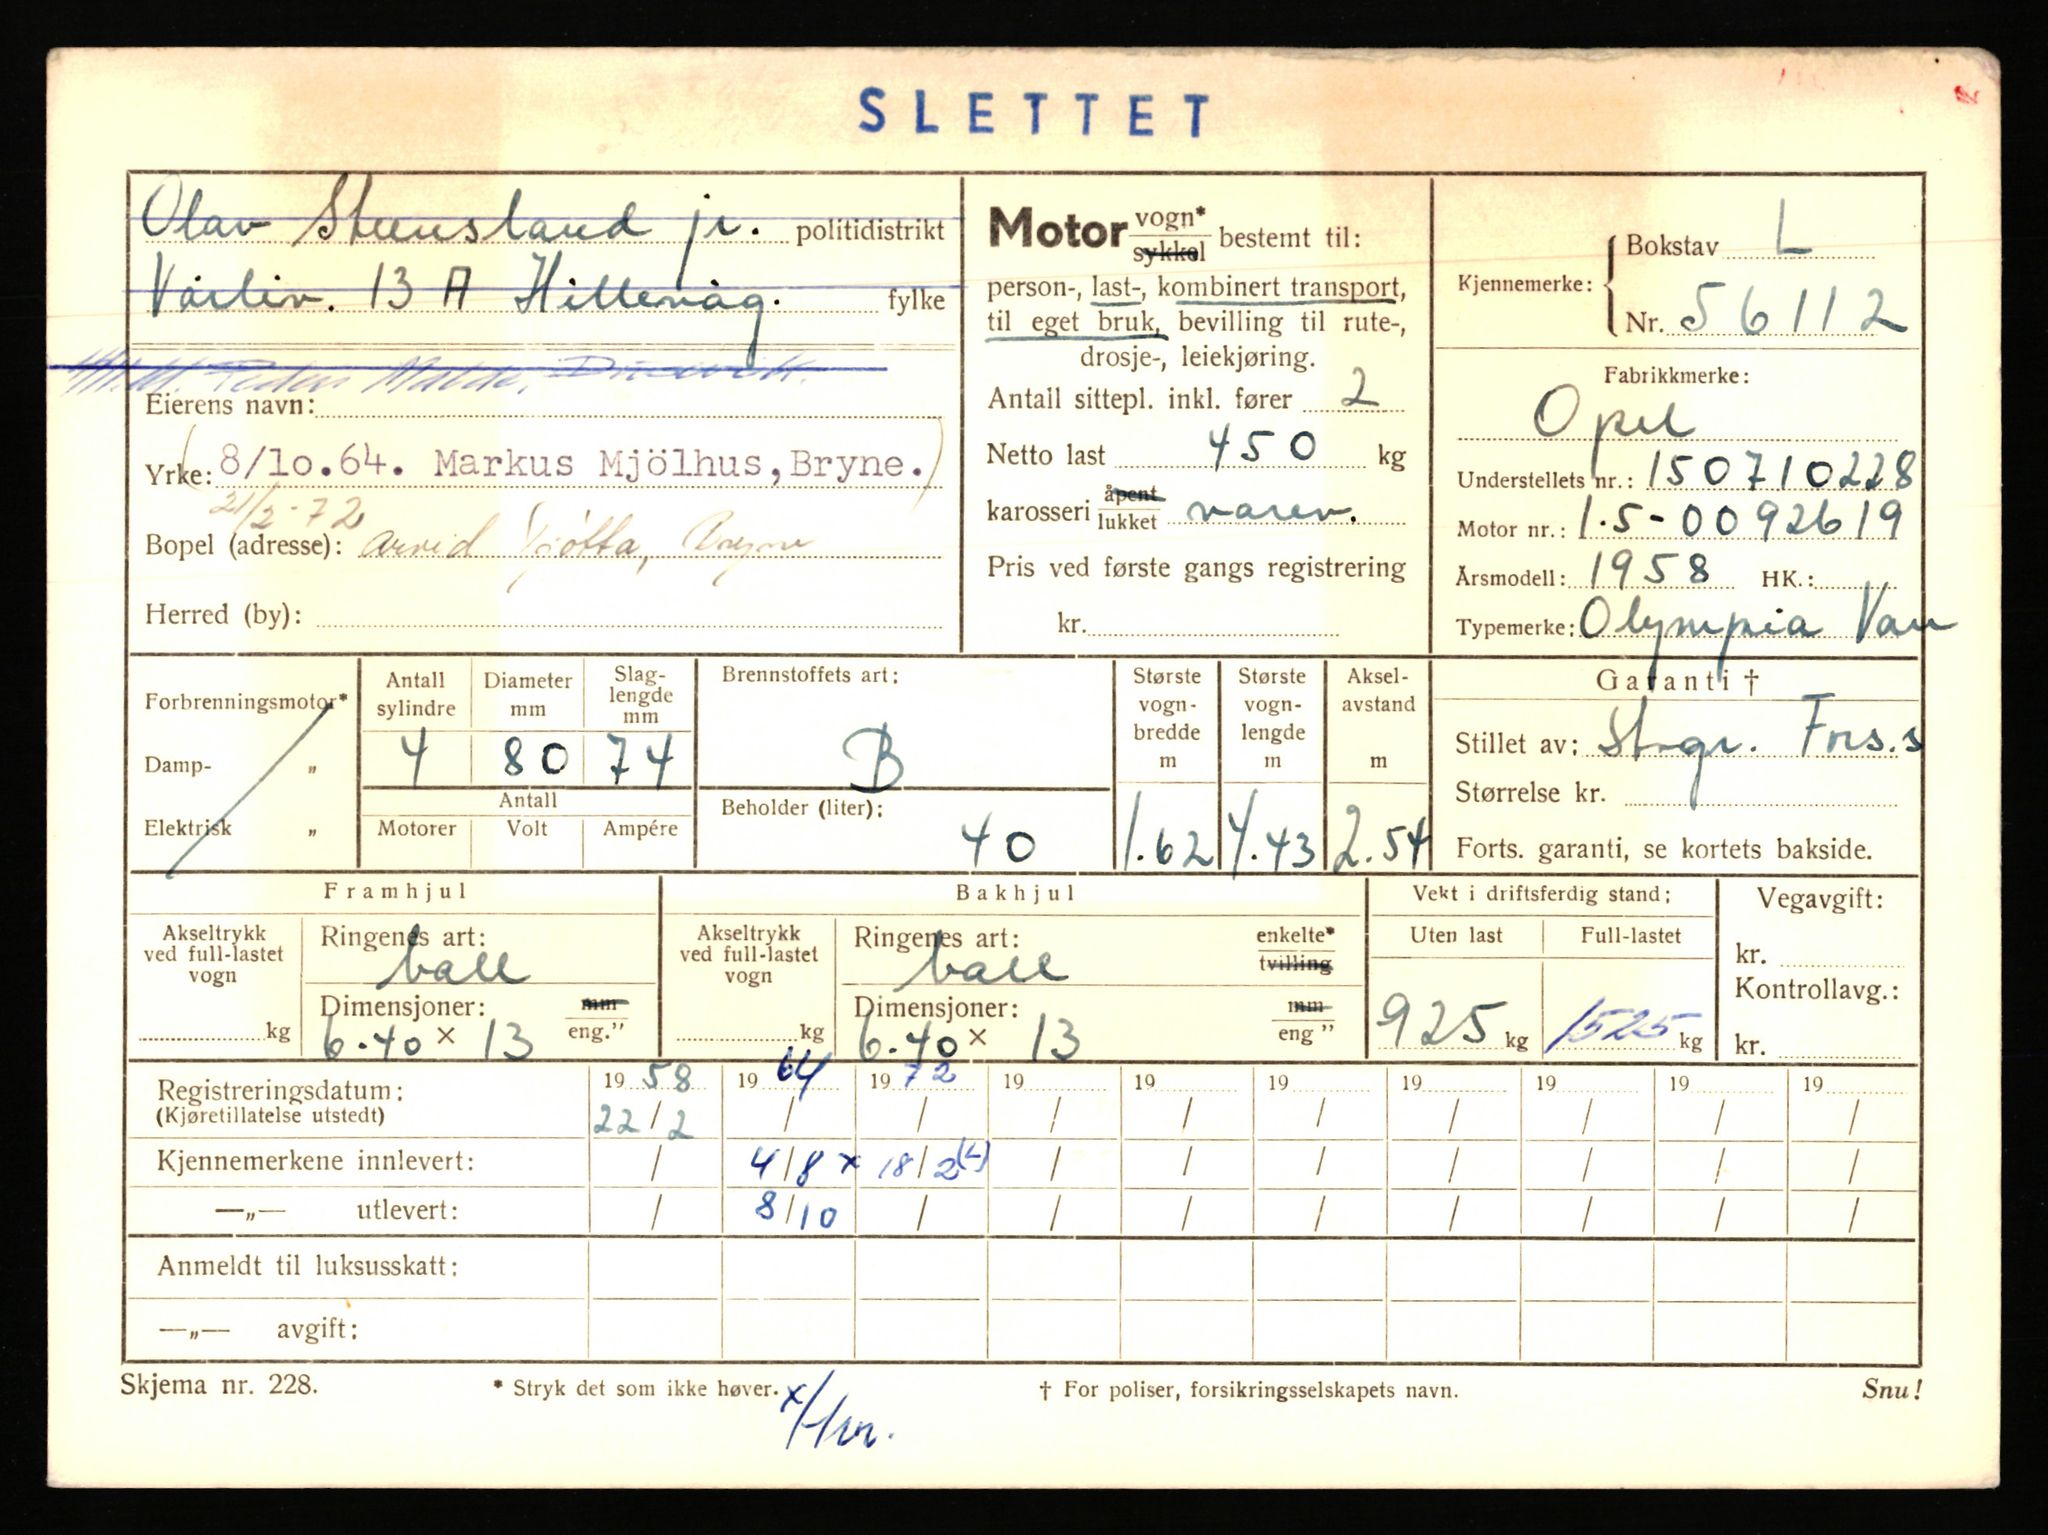 SLETTET
Olav Steensland jr. politidistrikt
Vårliv. 13 A Hillevåg. fylke
Peder Malde,
Eierens navn:
Yrke: (8/10.64. Markus Mjölhus, Bryne.)
21/2-72
Bopel (adresse): Arvid Kjøtta, Bryne
Herred (by):
Motor vogn* sykkel bestemt til:
person-, last-, kombinert transport,
til eget bruk, bevilling til rute-,
drosje-, leiekjøring.
Antall sittepl. inkl. fører 2
Netto last 450 kg
karosseri åpent lukket varev.
Pris ved første gangs registrering
kr.
Kjennemerke: Bokstav L
Nr. 56112
Fabrikkmerke:
Opel
Understellets nr.: 150710228
Motor nr.: 1.5-0092619
Årsmodell: 1958 HK.:
Typemerke: Olympia Van
Forbrenningsmotor*
Damp- „
Elektrisk „
Antall sylindre Diameter mm Slag-lengde mm
4 80 74
Antall
Motorer Volt Ampére
Brennstoffets art:
B
Beholder (liter):
40
Største vogn-bredde m
1.62
Største vogn-lengde m
4.43
Aksel-avstand m
2.54
Garanti †
Stillet av: Stvgr. Fors.s
Størrelse kr.
Forts. garanti, se kortets bakside.
Framhjul
Akseltrykk ved full-lastet vogn
kg
Ringenes art:
ball
Dimensjoner: mm
6.40 × 13 eng."
Bakhjul
Akseltrykk ved full-lastet vogn
kg
Ringenes art: enkelte*
ball tvilling
Dimensjoner: mm
6.40 × 13 eng "
Vekt i driftsferdig stand:
Uten last Full-lastet
925 kg 1525 kg
Vegavgift:
kr.
Kontrollavg.:
kr.
Registreringsdatum: 19 58 19 64 19 72 19 19 19 19 19 19 19
(Kjøretillatelse utstedt) 22/2 / / / / / / / / /
Kjennemerkene innlevert: / 4/8 x 18/2 (L) / / / / / / /
—„— utlevert: / 8/10 / / / / / / / /
Anmeldt til luksusskatt:
—„— avgift:
Skjema nr. 228. * Stryk det som ikke høver. † For poliser, forsikringsselskapets navn. Snu!
x/Hvr.